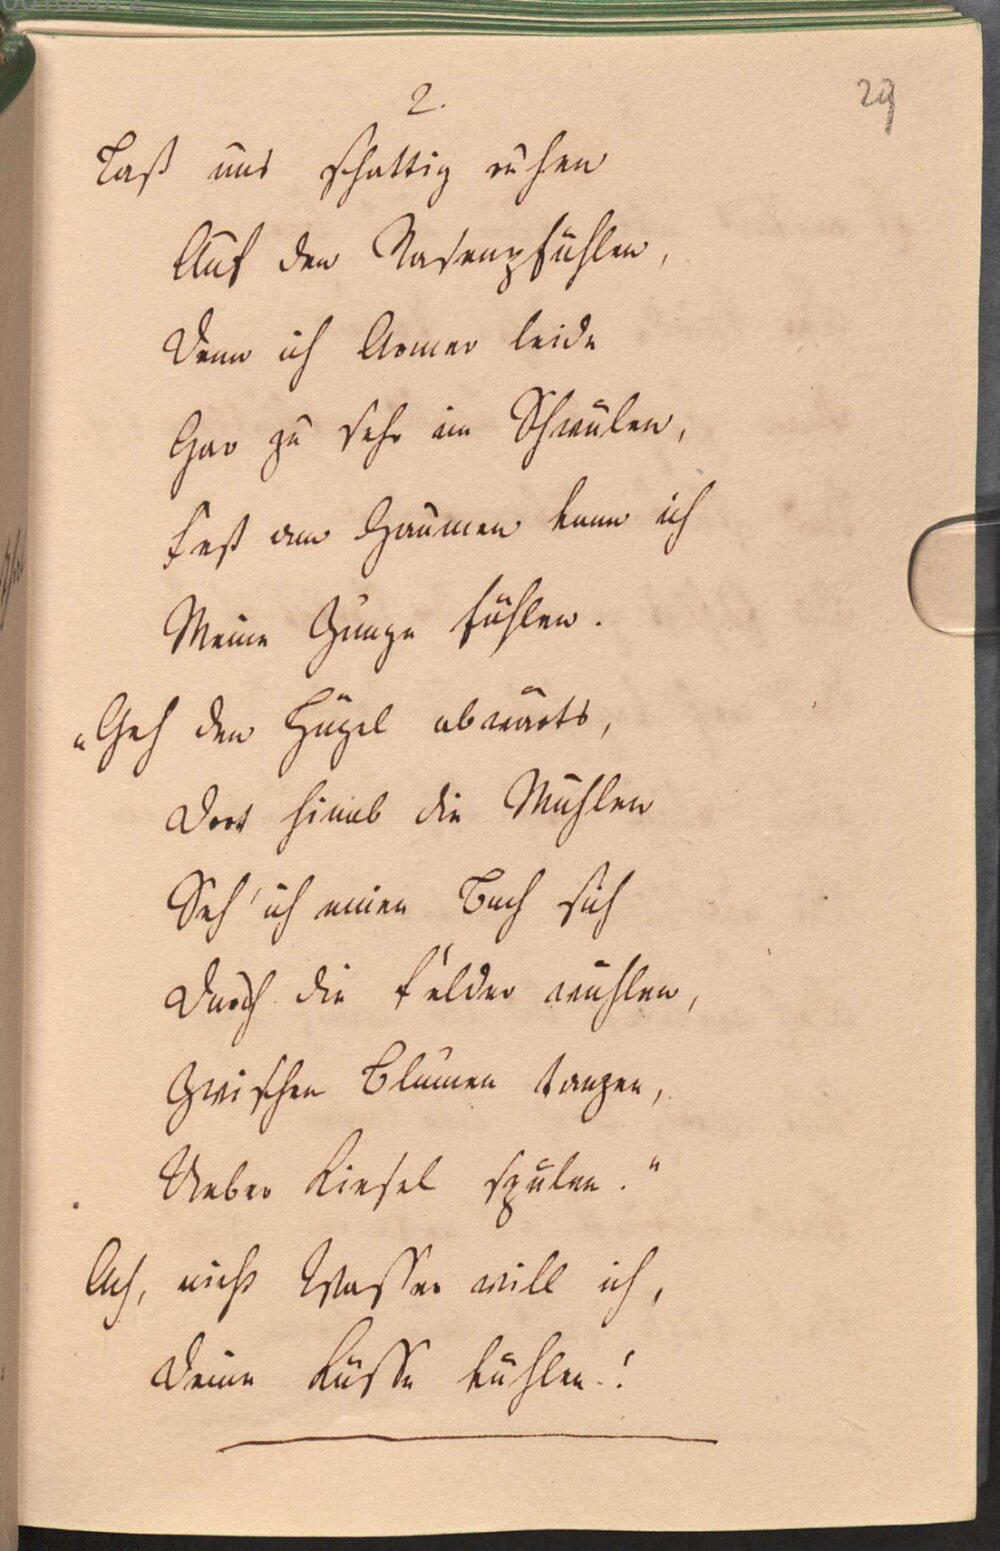 29
2.
Laß uns schattig ruhen
Auf den Rasenpfühlen,
Denn ich Armer leide
Gar zu sehr im Schwülen,
Fest am Gaumen kann ich
Meine Zunge fühlen.
„Geh den Hügel abwärts,
Dort hinab die Mühlen
Seh' ich einen Bach sich
Durch die Felder wühlen,
Zwischen Blumen tanzen,
Ueber Kiesel spülen."
Ach, nicht Wasser will ich,
Deine Küsse kühlen!